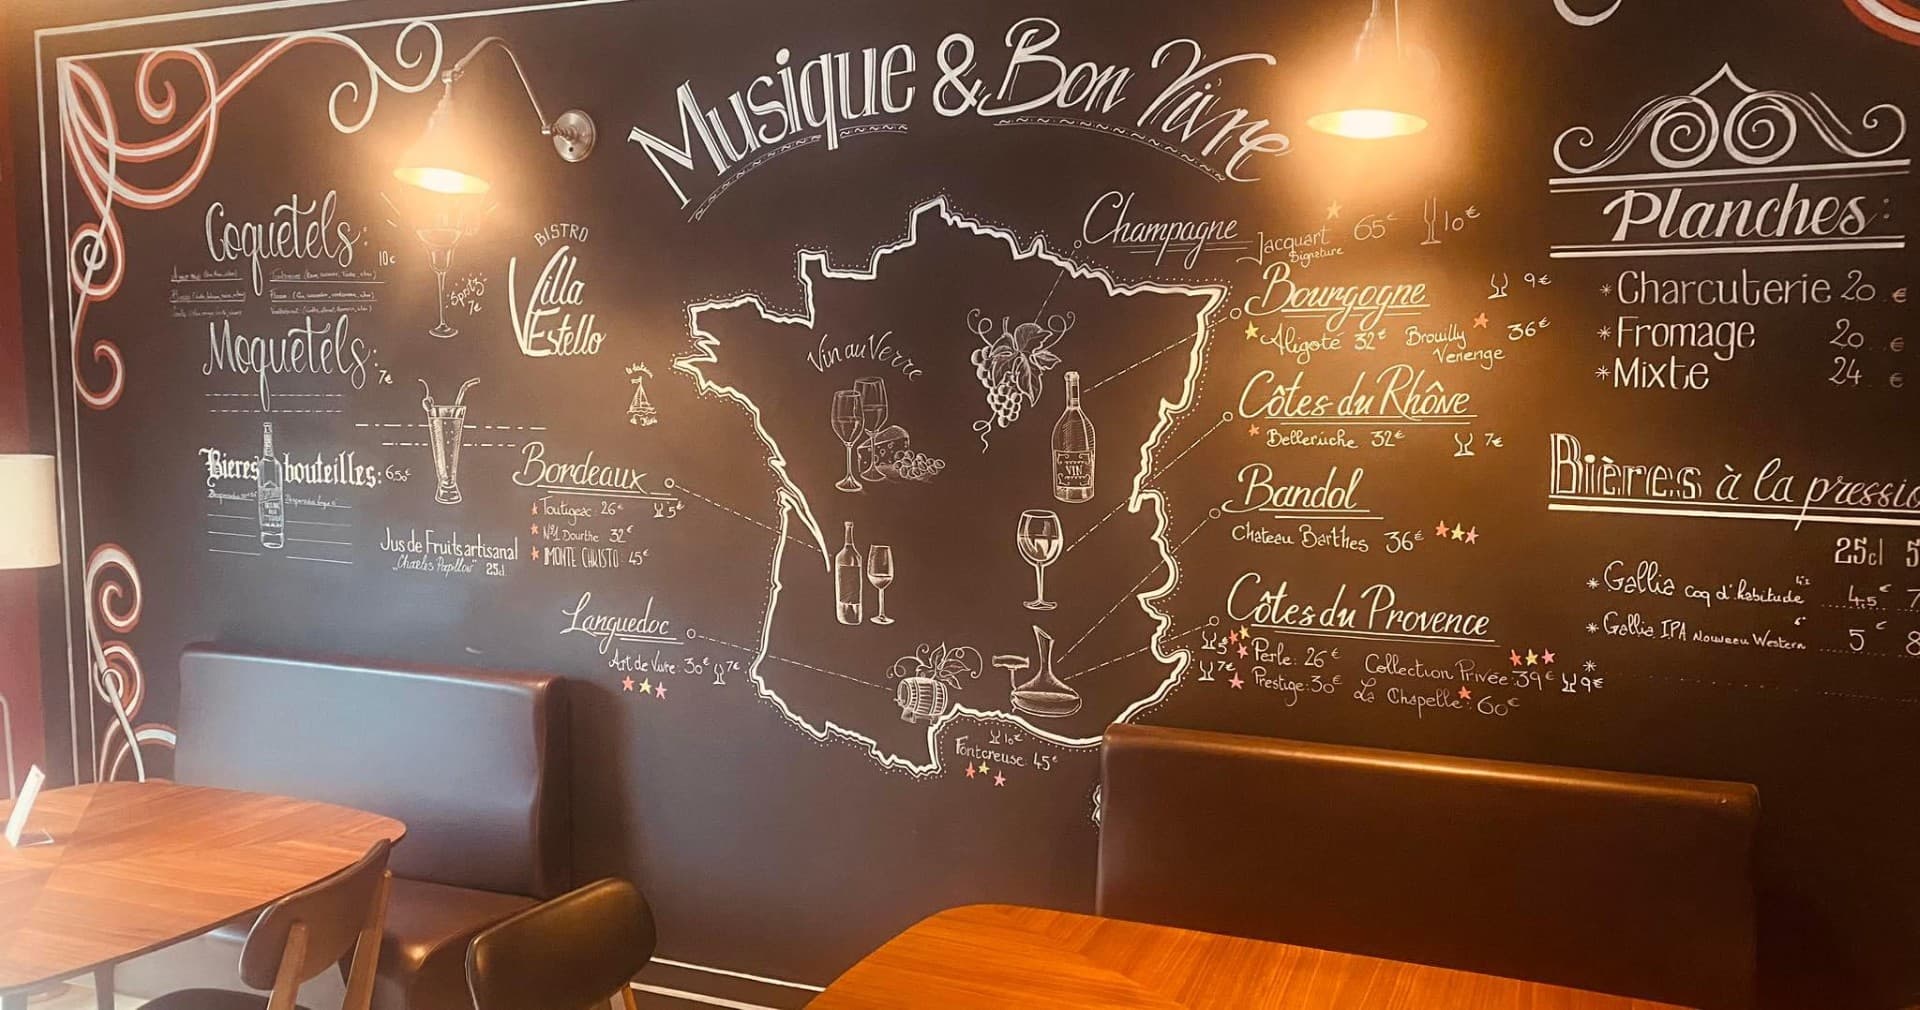 Musique & Bon Vivre
Coquetels:
10€
Spritz
7€
BISTRO
Villa
Estello
Moquetels:
7€
Bieres bouteilles: 6,50€
Jus de Fruits artisanal
"Charles Papillon" 25cl
Bordeaux
Toutigeac 26€ 5€
N°1 Dourthe 32€
MONTE CHRISTO 45€
Languedoc
Art de Vivre: 30€ 7€
Vin au Verre
VIN
10€
Fontcreuse 45€
Champagne
Jacquart 65€ 10€
Signature
Bourgogne 9€
Aligoté 32€ Brouilly 36€
Venenge
Côtes du Rhône
Belleruche 32€ 7€
Bandol
Chateau Barthes 36€
Côtes du Provence
5€ Perle: 26€ Collection Privée: 39€ 9€
7€ Prestige: 30€ La Chapelle: 60€
Planches:
*Charcuterie 20 €
*Fromage 20 €
*Mixte 24 €
Bières à la pressio
25cl 5
* Gallia coq d'habitude 4.5€ 7
* Gallia IPA Nouveau Western 5€ 8